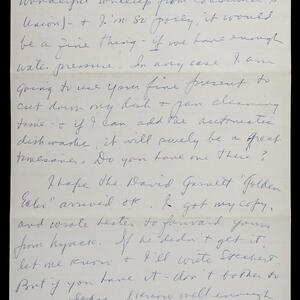 wonderful writeup from Consumer's
Union) - & I'm so , it would
be a fine thing - if we have enough
water pressure. In any case I am
going to use your fine present to
cut down my dish & pan cleaning
time - & if I can add the automatic
dishwasher, it will surely be a great
timesaver. Do you have one there?
I hope the David Garnett "Golden
" arrived OK. I got my copy,
and wrote to forward yours
from . If he didn't & get it,
let me know & I'll write
But if you have it - don't bother to
person well enough